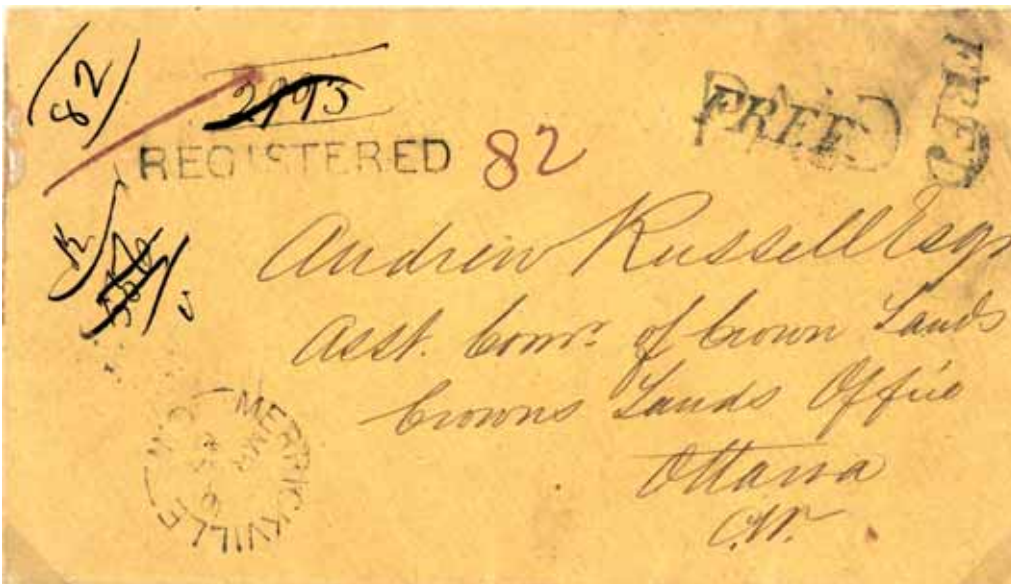 82
2995
REGISTERED 82
FREE
Andrew Russell Esqr
Asst. Comr. of Crown Lands
Crowns Lands Office
Ottawa
C.W.
MERRICKVILLE